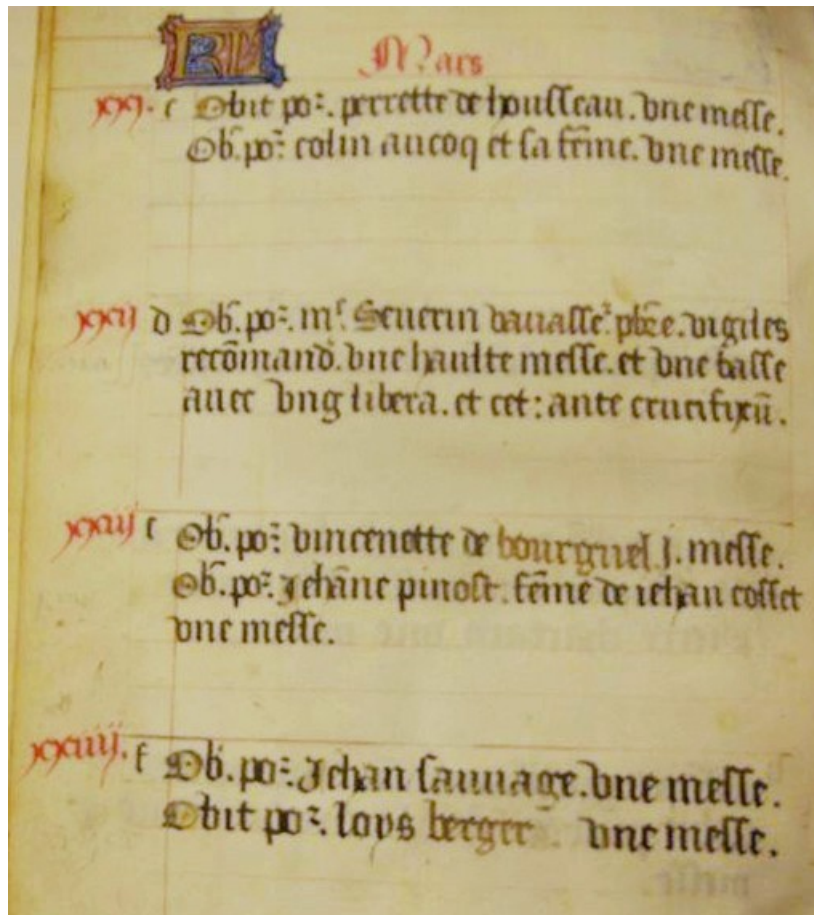 KL Mars
xxj. c Obit poᷣ. perrette de housseau. vne messe.
Ob. poᷣ. colin aucoq et sa fēme. vne messe.
xxij d Ob. poᷣ. mʳ. Seuerin vauasseʳ pb̄re. vigiles
recōmand̄. vne haulte messe. et vne basse
auec vng libera. et cet: ante crucifixū.
xxiij e Ob. poᷣ. vincenotte de bourguel j. messe.
Ob. poᷣ. Jehāne pinost. fēme de iehan cosset
vne messe.
xxiiij. f Ob. poᷣ. Jehan sauuage. vne messe.
Obit poᷣ. loys berger vne messe.